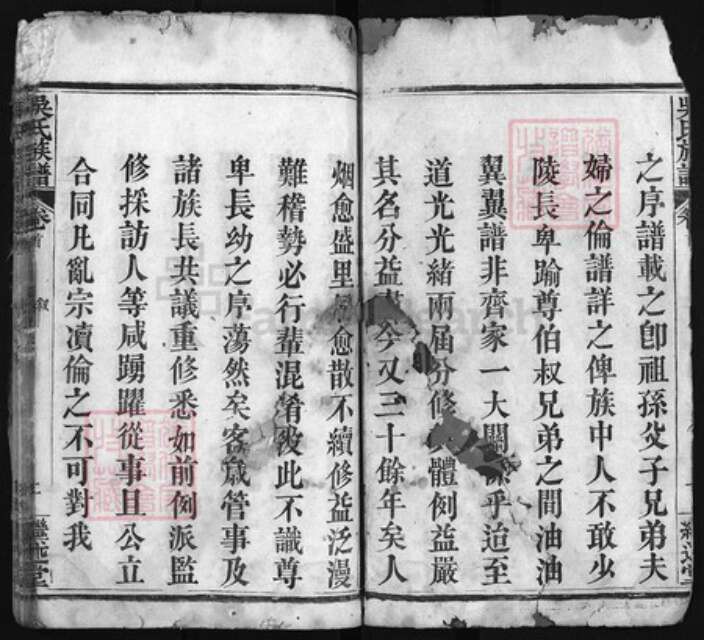 吳氏族譜
之序譜載之卽祖孫父子兄弟夫
婦之倫譜詳之俾族中人不敢少
陵長卑踰尊伯叔兄弟之間油油
翼翼譜非齊家一大關係乎迨至
道光光緒兩屆分修其體例益嚴
其名分益 今又三十餘年矣人
烟愈盛里居愈散不續修益泛漫
難稽勢必行輩混淆彼此不識尊
卑長幼之序蕩然矣客歲管事及
諸族長共議重修悉如前例派監
修採訪人等咸踴躍從事且公立
合同凡亂宗瀆倫之不可對我
吳氏族譜
卷首
叙
繼述堂